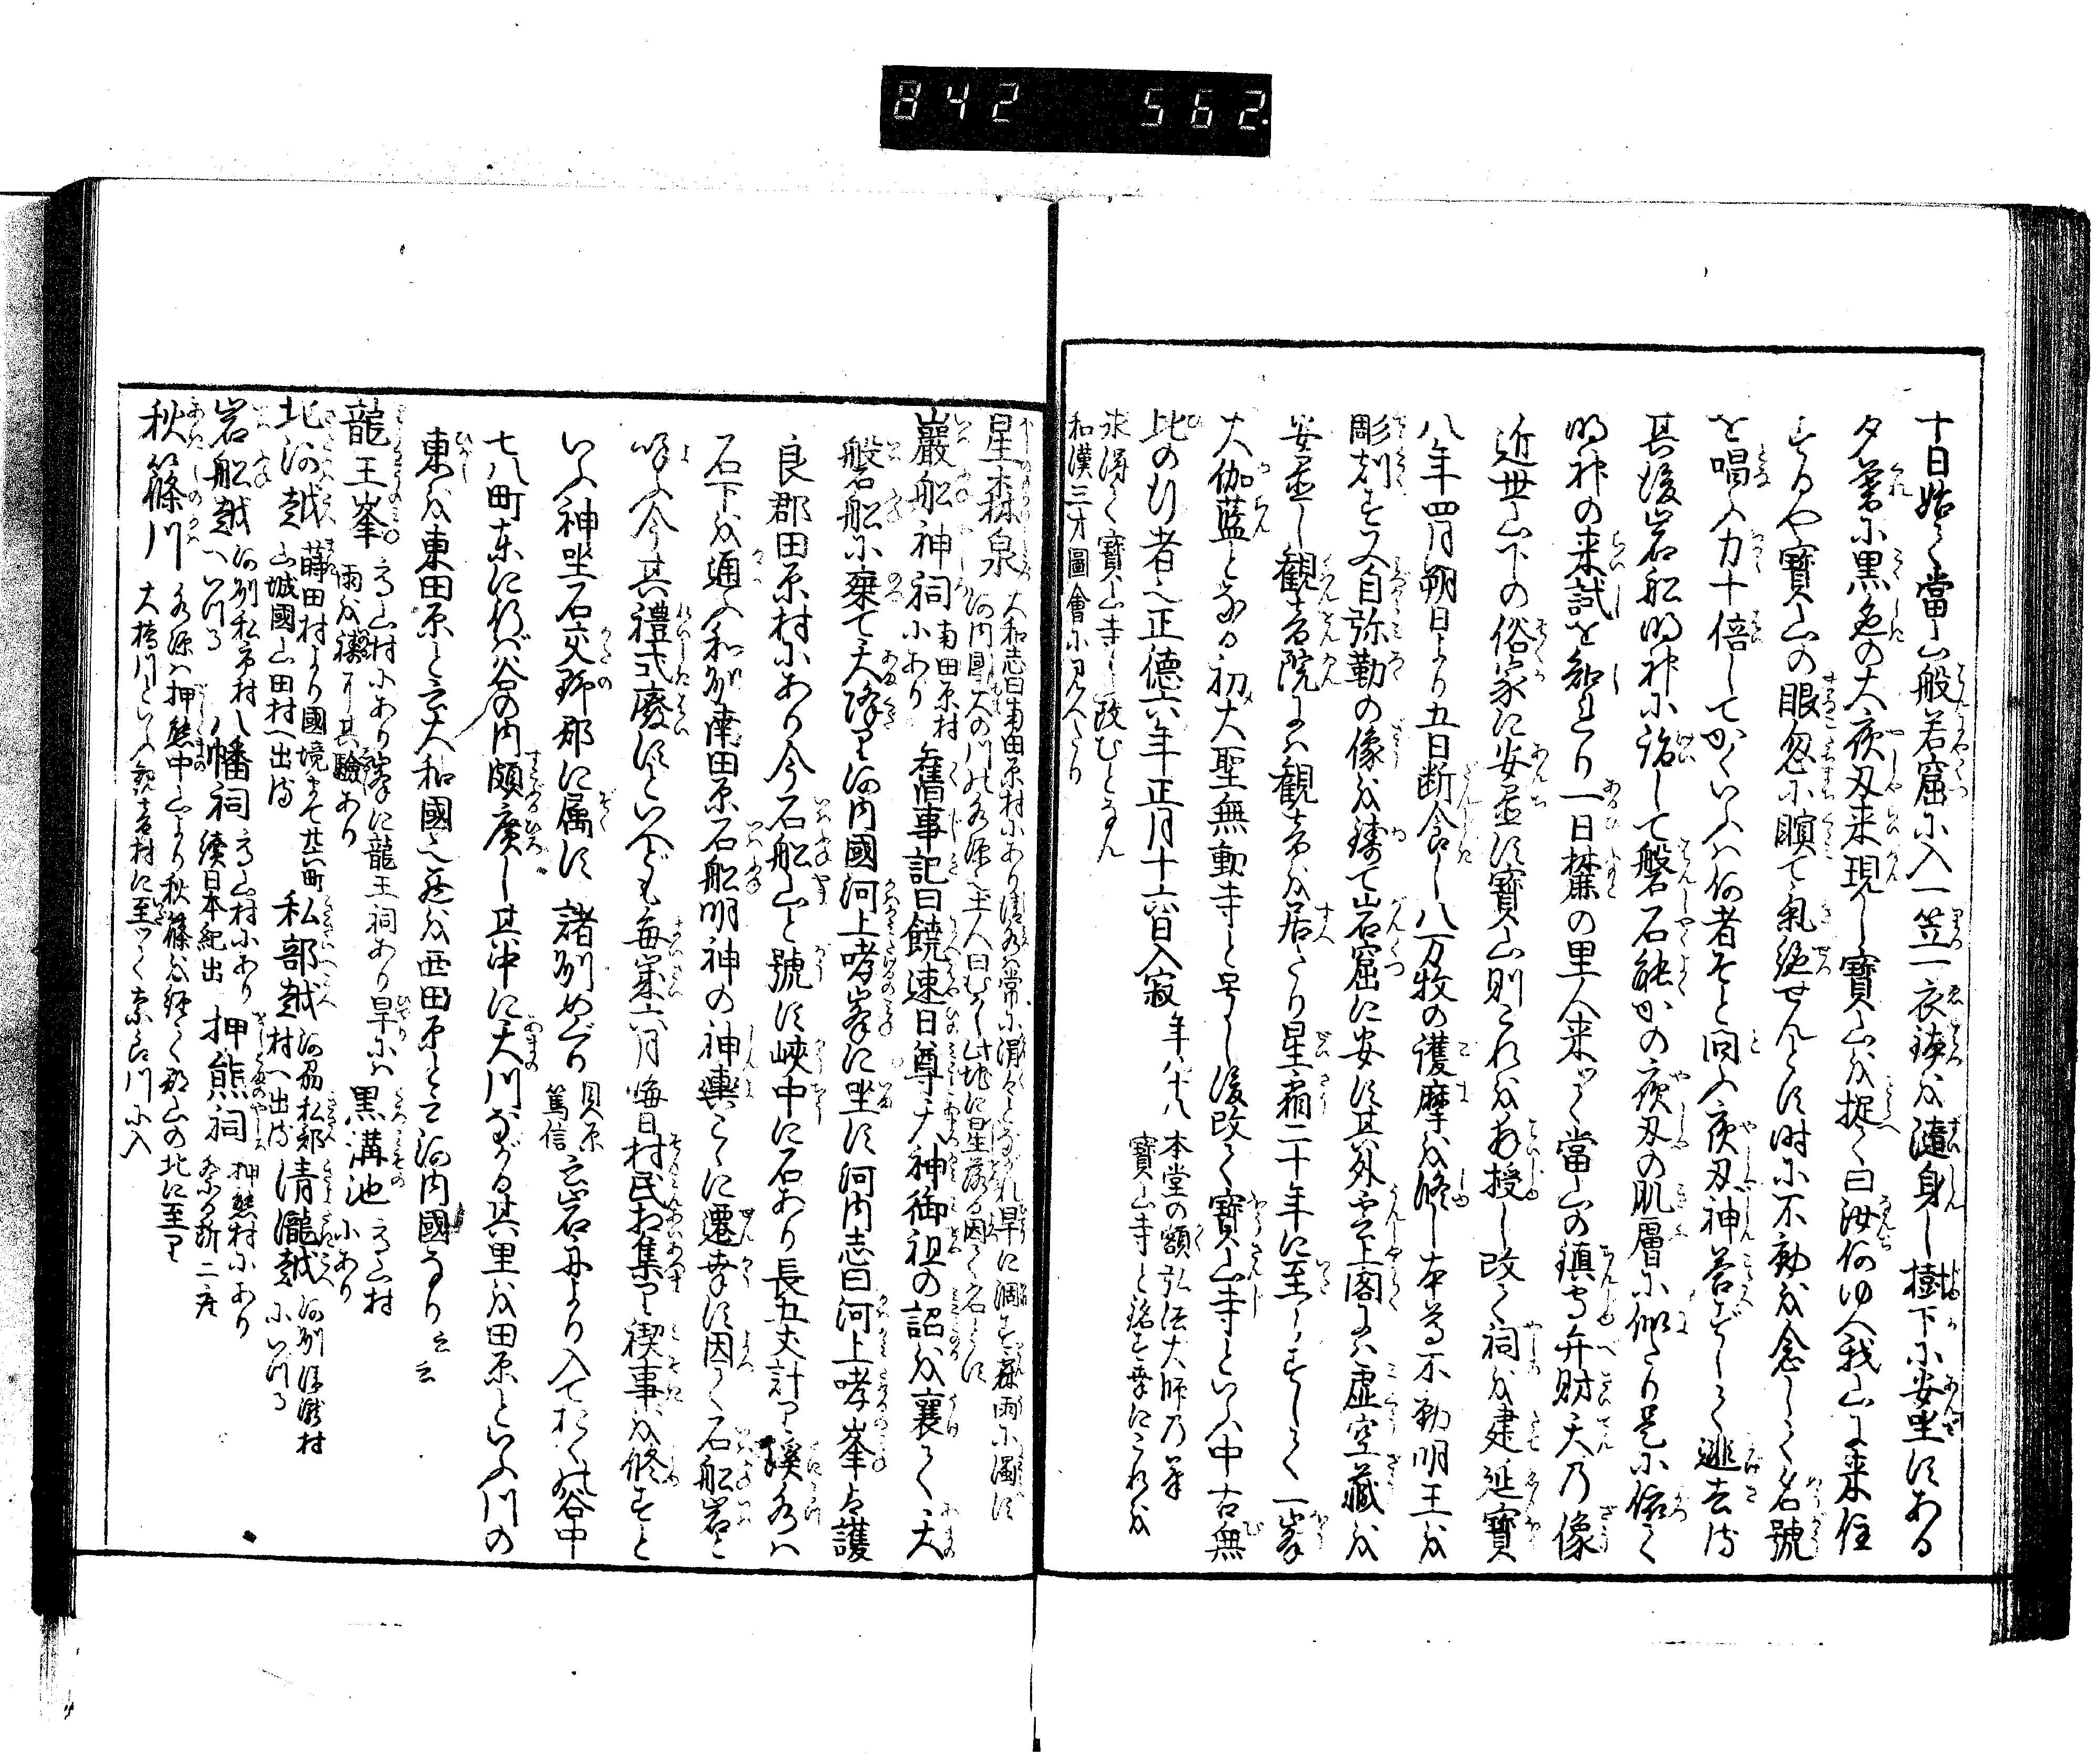 842 562.
十日始て當山般若窟に入一笠一衣錬を隨身し樹下に安坐すある
夕暮に黒色の大夜叉来現し寶山を捉て曰汝何ゆへ我山に来住
するや寶山の眼忽に瞚て氣絶せんとす時に不動を念じて名號
を唱ふ力十倍してかくいふは何者ぞと問ふ夜叉神答ずして逃去る
其後岩船明神に詣して磐石能かの夜叉の肌層に似たり是に依て
明神の来試を知れり一日麓の里人来つて當山の鎮守弁財天の像
近世山下の俗家に安置す寶山則これを授し改て祠を建延寶
八年四月朔日より五日断食し八万牧の護摩を修し本尊不動明王を
彫刻す又自弥勒の像を鋳て岩窟に安す其外雲上閣には虚空藏を
安置し観音院には観音を居たり星霜二十年に至りずして一峯
大伽藍となる初大聖無動寺と号し後改て寶山寺といふ中古無
比の行者也正德六年正月十六日入寂 年八十八 本堂の額弘法大師乃筆
寶山寺と銘す幸にこれを
求得て寶山寺と改むとなん
和漢三才圖會に見へたり
星森泉 大和志曰南田原村にあり清水常に涓々とながれ旱に涸ず霖雨に濁ず
河内國天の川の水源也土人曰むかし此地に星落る因て名とす
巖船神祠 南田原村
にあり 舊事記曰饒速日尊天神御祖の詔を襄て天
磐船に乗て天降り河内國河上哮峯に坐す河内志曰河上哮峯与護
良郡田原村にあり今石船山と號す峽中に石あり長五丈計り溪水は
石下を通ふ和州南田原石船明神の神輿こゝに遷幸す因て石船岩と
呼ふ今其禮式廢すといへども毎歳六月晦日村民相集り禊事を修すと
いふ神坐石交野郡に属す 諸州めぐり 貝原
篤信 云岩舟より入ておくの谷中
七八町東に行ば谷の内頗廣し其中に天川ながる其里を田原といふ川の
東を東田原と云大和國也西を西田原とて河内國なり云云
龍王峯 高山村にあり峯に龍王祠あり旱には
雨を禱り其驗あり 黒溝池 高山村
にあり
北河越 蒔田村より國境まで廿六町
山城國山田村へ出る 私部越 河州私部
村へ出る 清瀧越 河州清瀧村
にいづる
岩船越 河州私市村
へいづる 八幡祠 高山村にあり
續日本紀出 押熊祠 押熊村にあり
祭る所二座
秋篠川 水源は押熊中山より秋篠を經て郡山の北に至り
大橋川といふ観音村に至つて奈良川に入